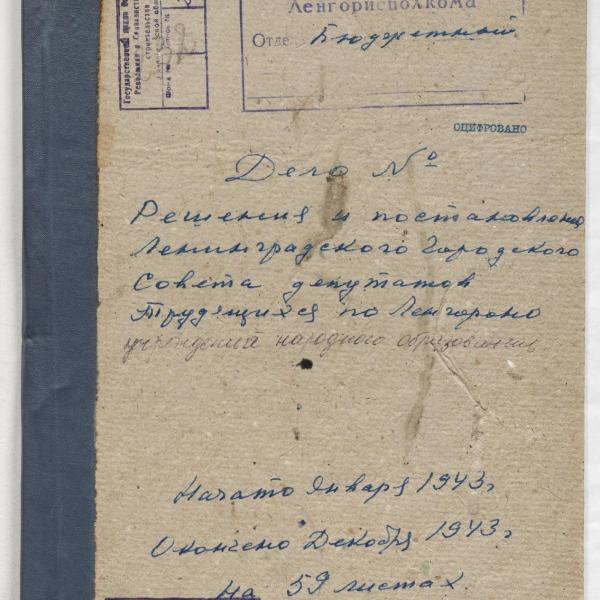 Государственный
Революции и
строительства
Ленгорисполкома
Отдел Бюджетный
ОЦИФРОВАНО
Дело №
Решения и постановления
Ленинградского Городского
Совета депутатов
Трудящихся по Ленгороно
учреждений народного образования
Начато Января 1943 г
Окончено Декабря 1943 г
На 59 листах